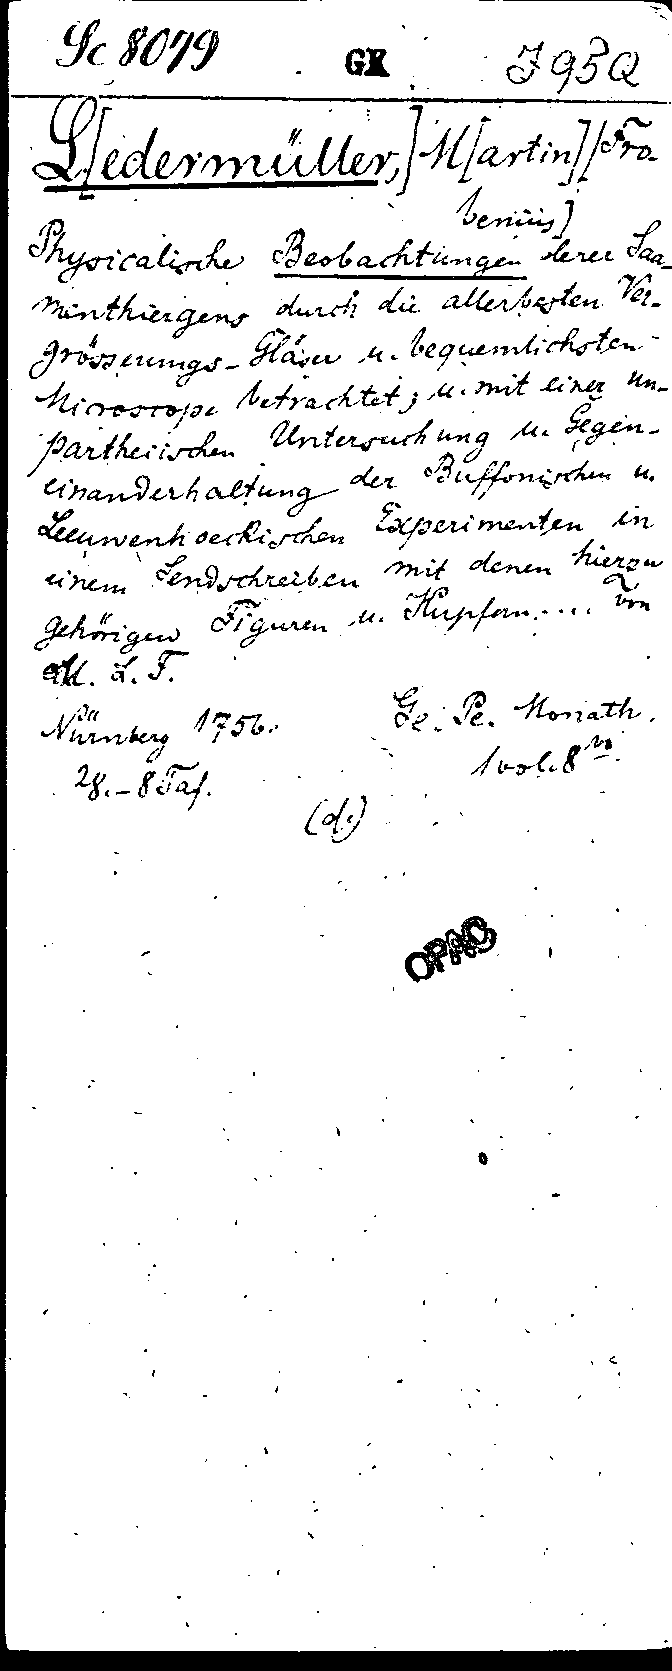 Sc 8079 GK J 95 Q
L[edermüller,] M[artin] [Fro-
benius]
Physicalische Beobachtungen derer Saa-
menthiergens durch die allerbesten Ver-
grösserungs-Gläser u. bequemlichsten
Microscope betrachtet; u. mit einer un-
partheiischen Untersuchung u. Gegen-
einanderhaltung der Buffonischen u.
Leeuwenhoeckischen Experimenten in
einem Sendschreiben mit denen hierzu
gehörigen Figuren u. Kupfern.... von
M. L. F.
Nürnberg 1756. Ge. Pe. Monath.
28.-8 Taf. 1 vol. 8vo.
(d.)
OPAC